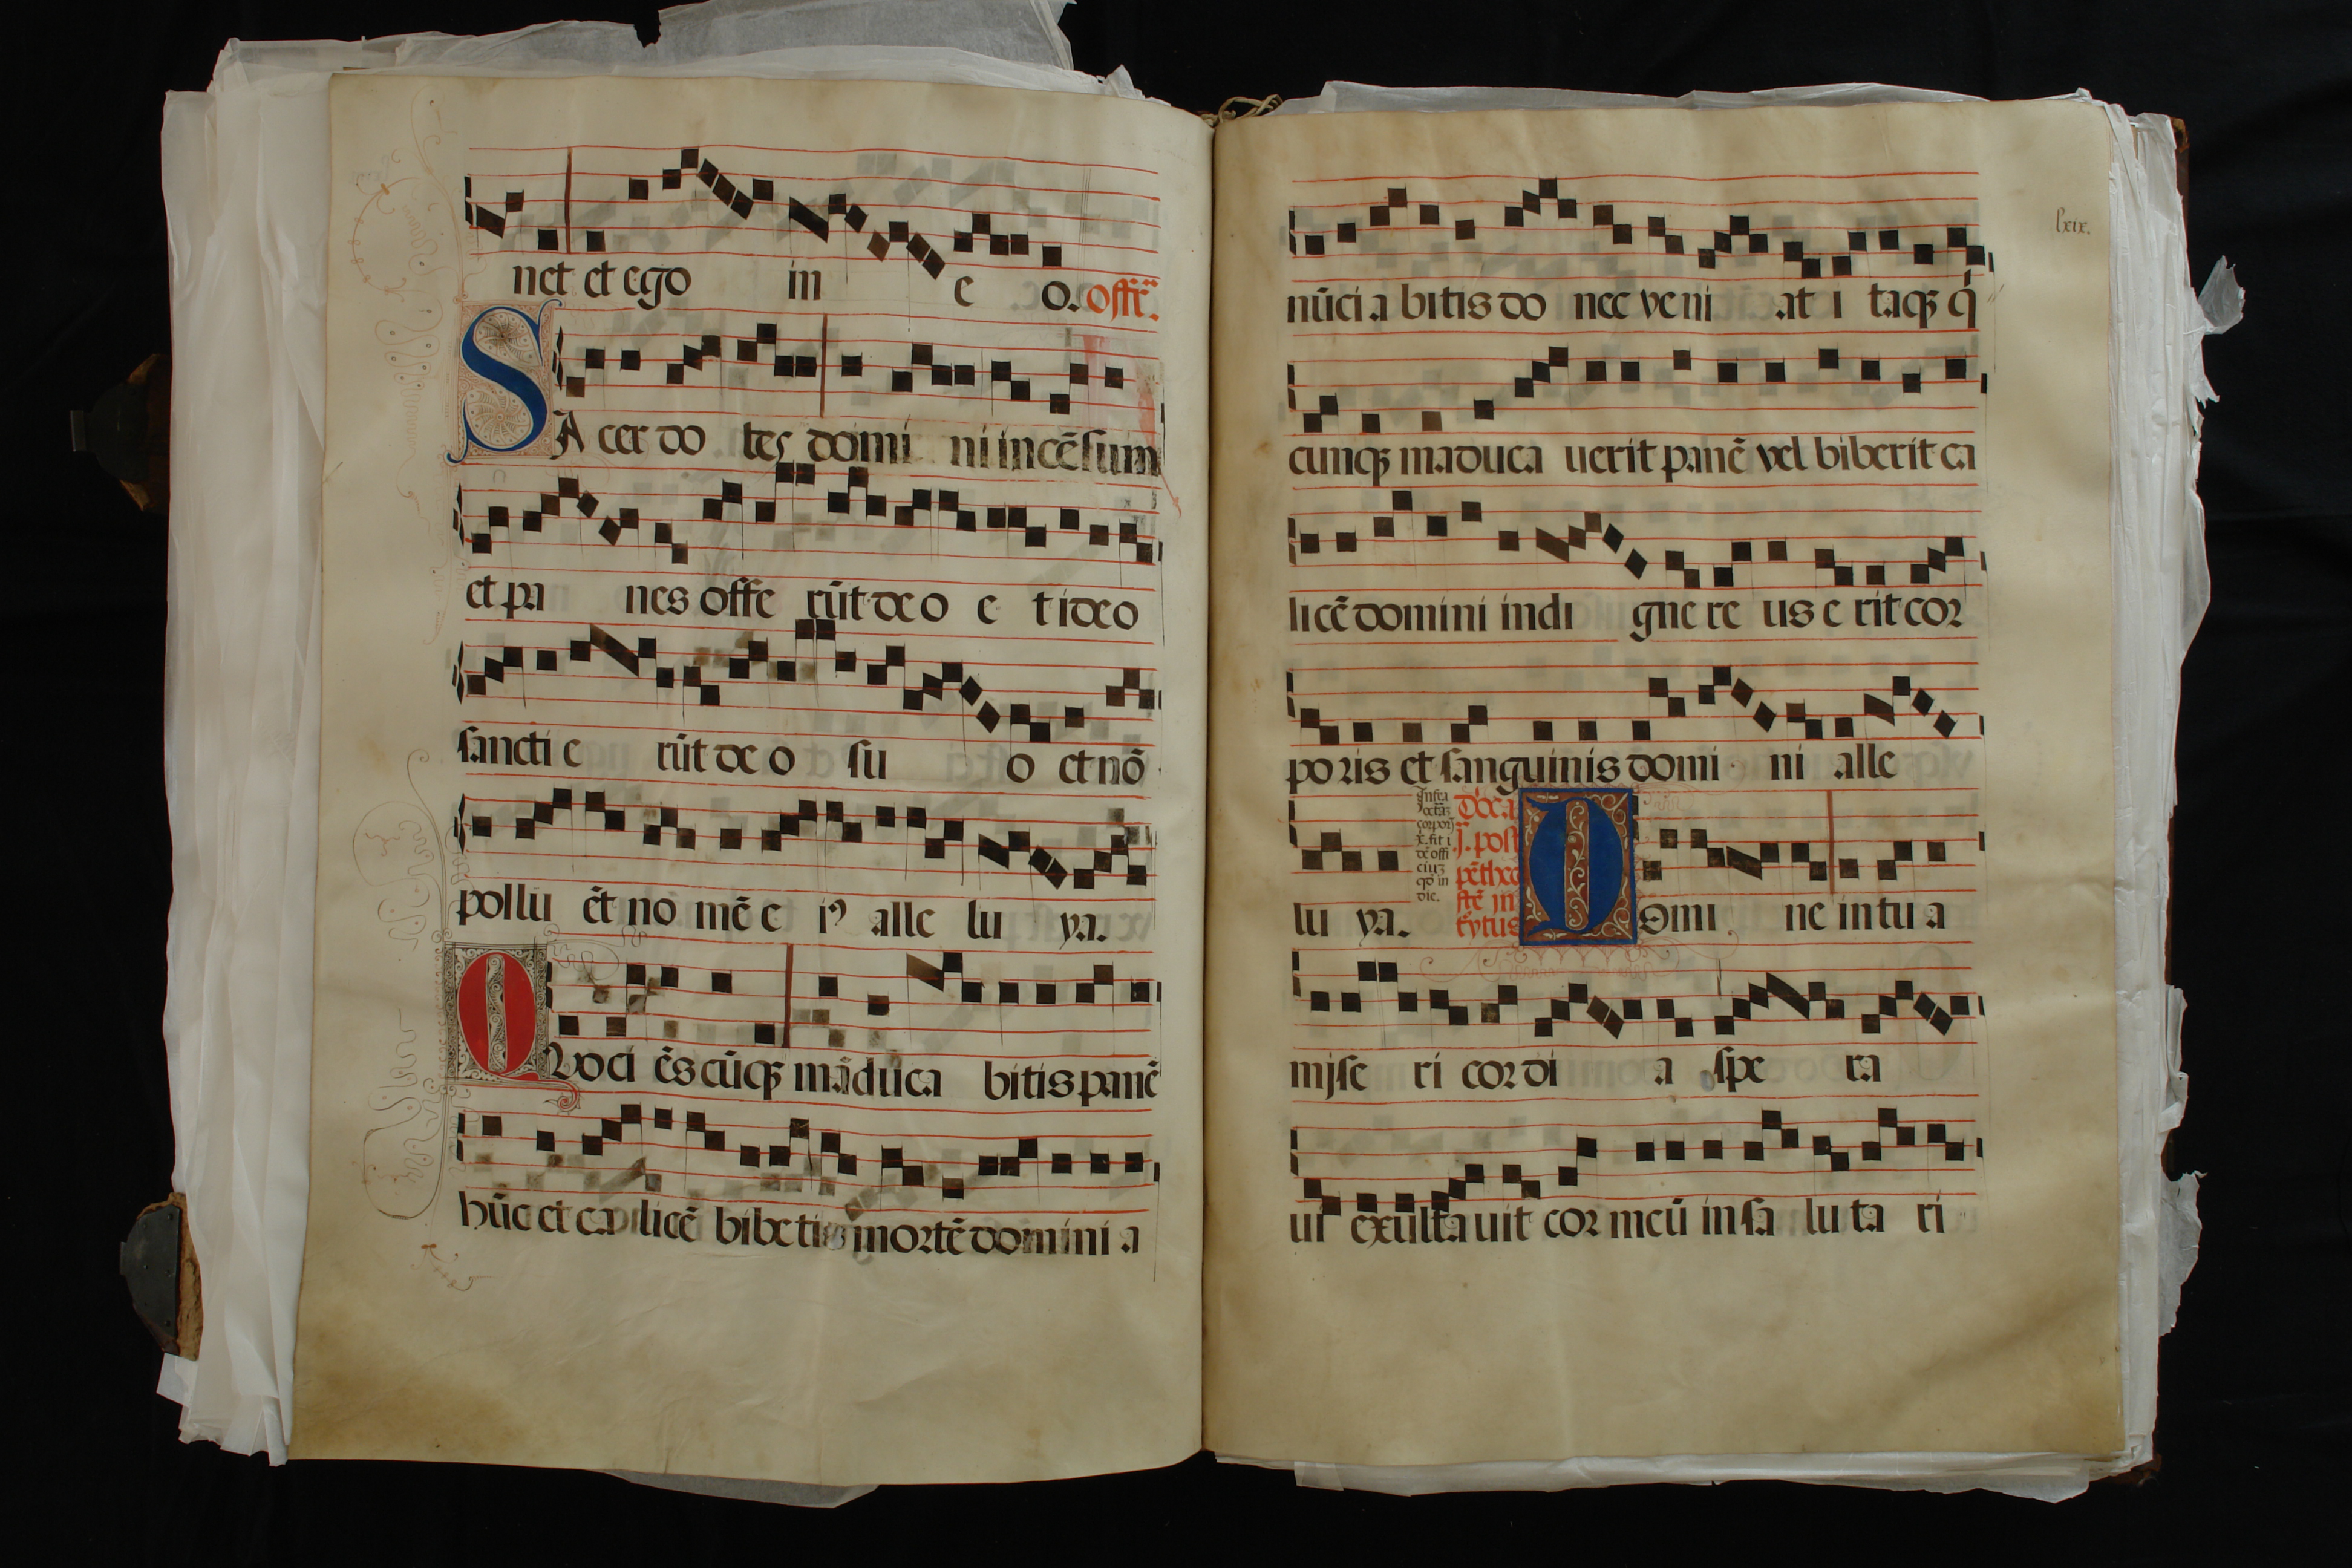 net et ego in e o. offē.
SA cer do tes domi ni incēsum
et pa nes offe rūt deo e t ideo
sancti e rūt de o su o et nō
pollu ēt no mē e iꝰ alle lu ya.
Quoci ēscūqꝫ māduca bitis panē
hūc et ca licē bibetis mortē domini a
lxix.
nūci a bitis do nec veni at i taqꝫ q̇
cunqꝫ maduca uerit panē vel biberit ca
licē domini indi gne re us e rit cor
poris et sanguinis domi ni alle
lu ya.
Domi ne in tu a
mise ri cordi a spe ra
ui exulta uit cor meū in sa luta ri